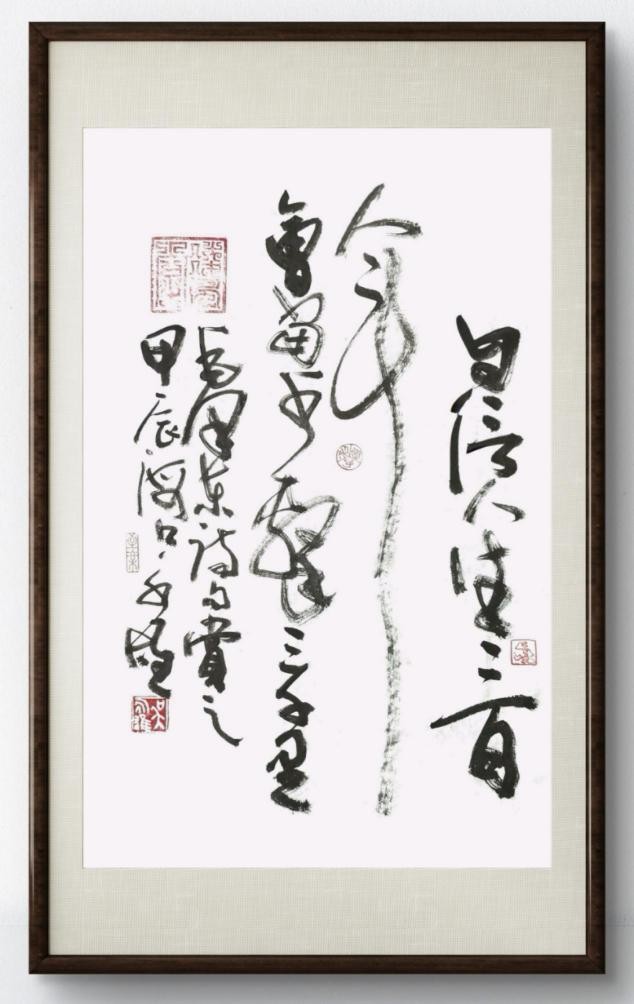 自信人生二百
年
會當水擊三千里
毛澤東詩句賞之
甲辰海口